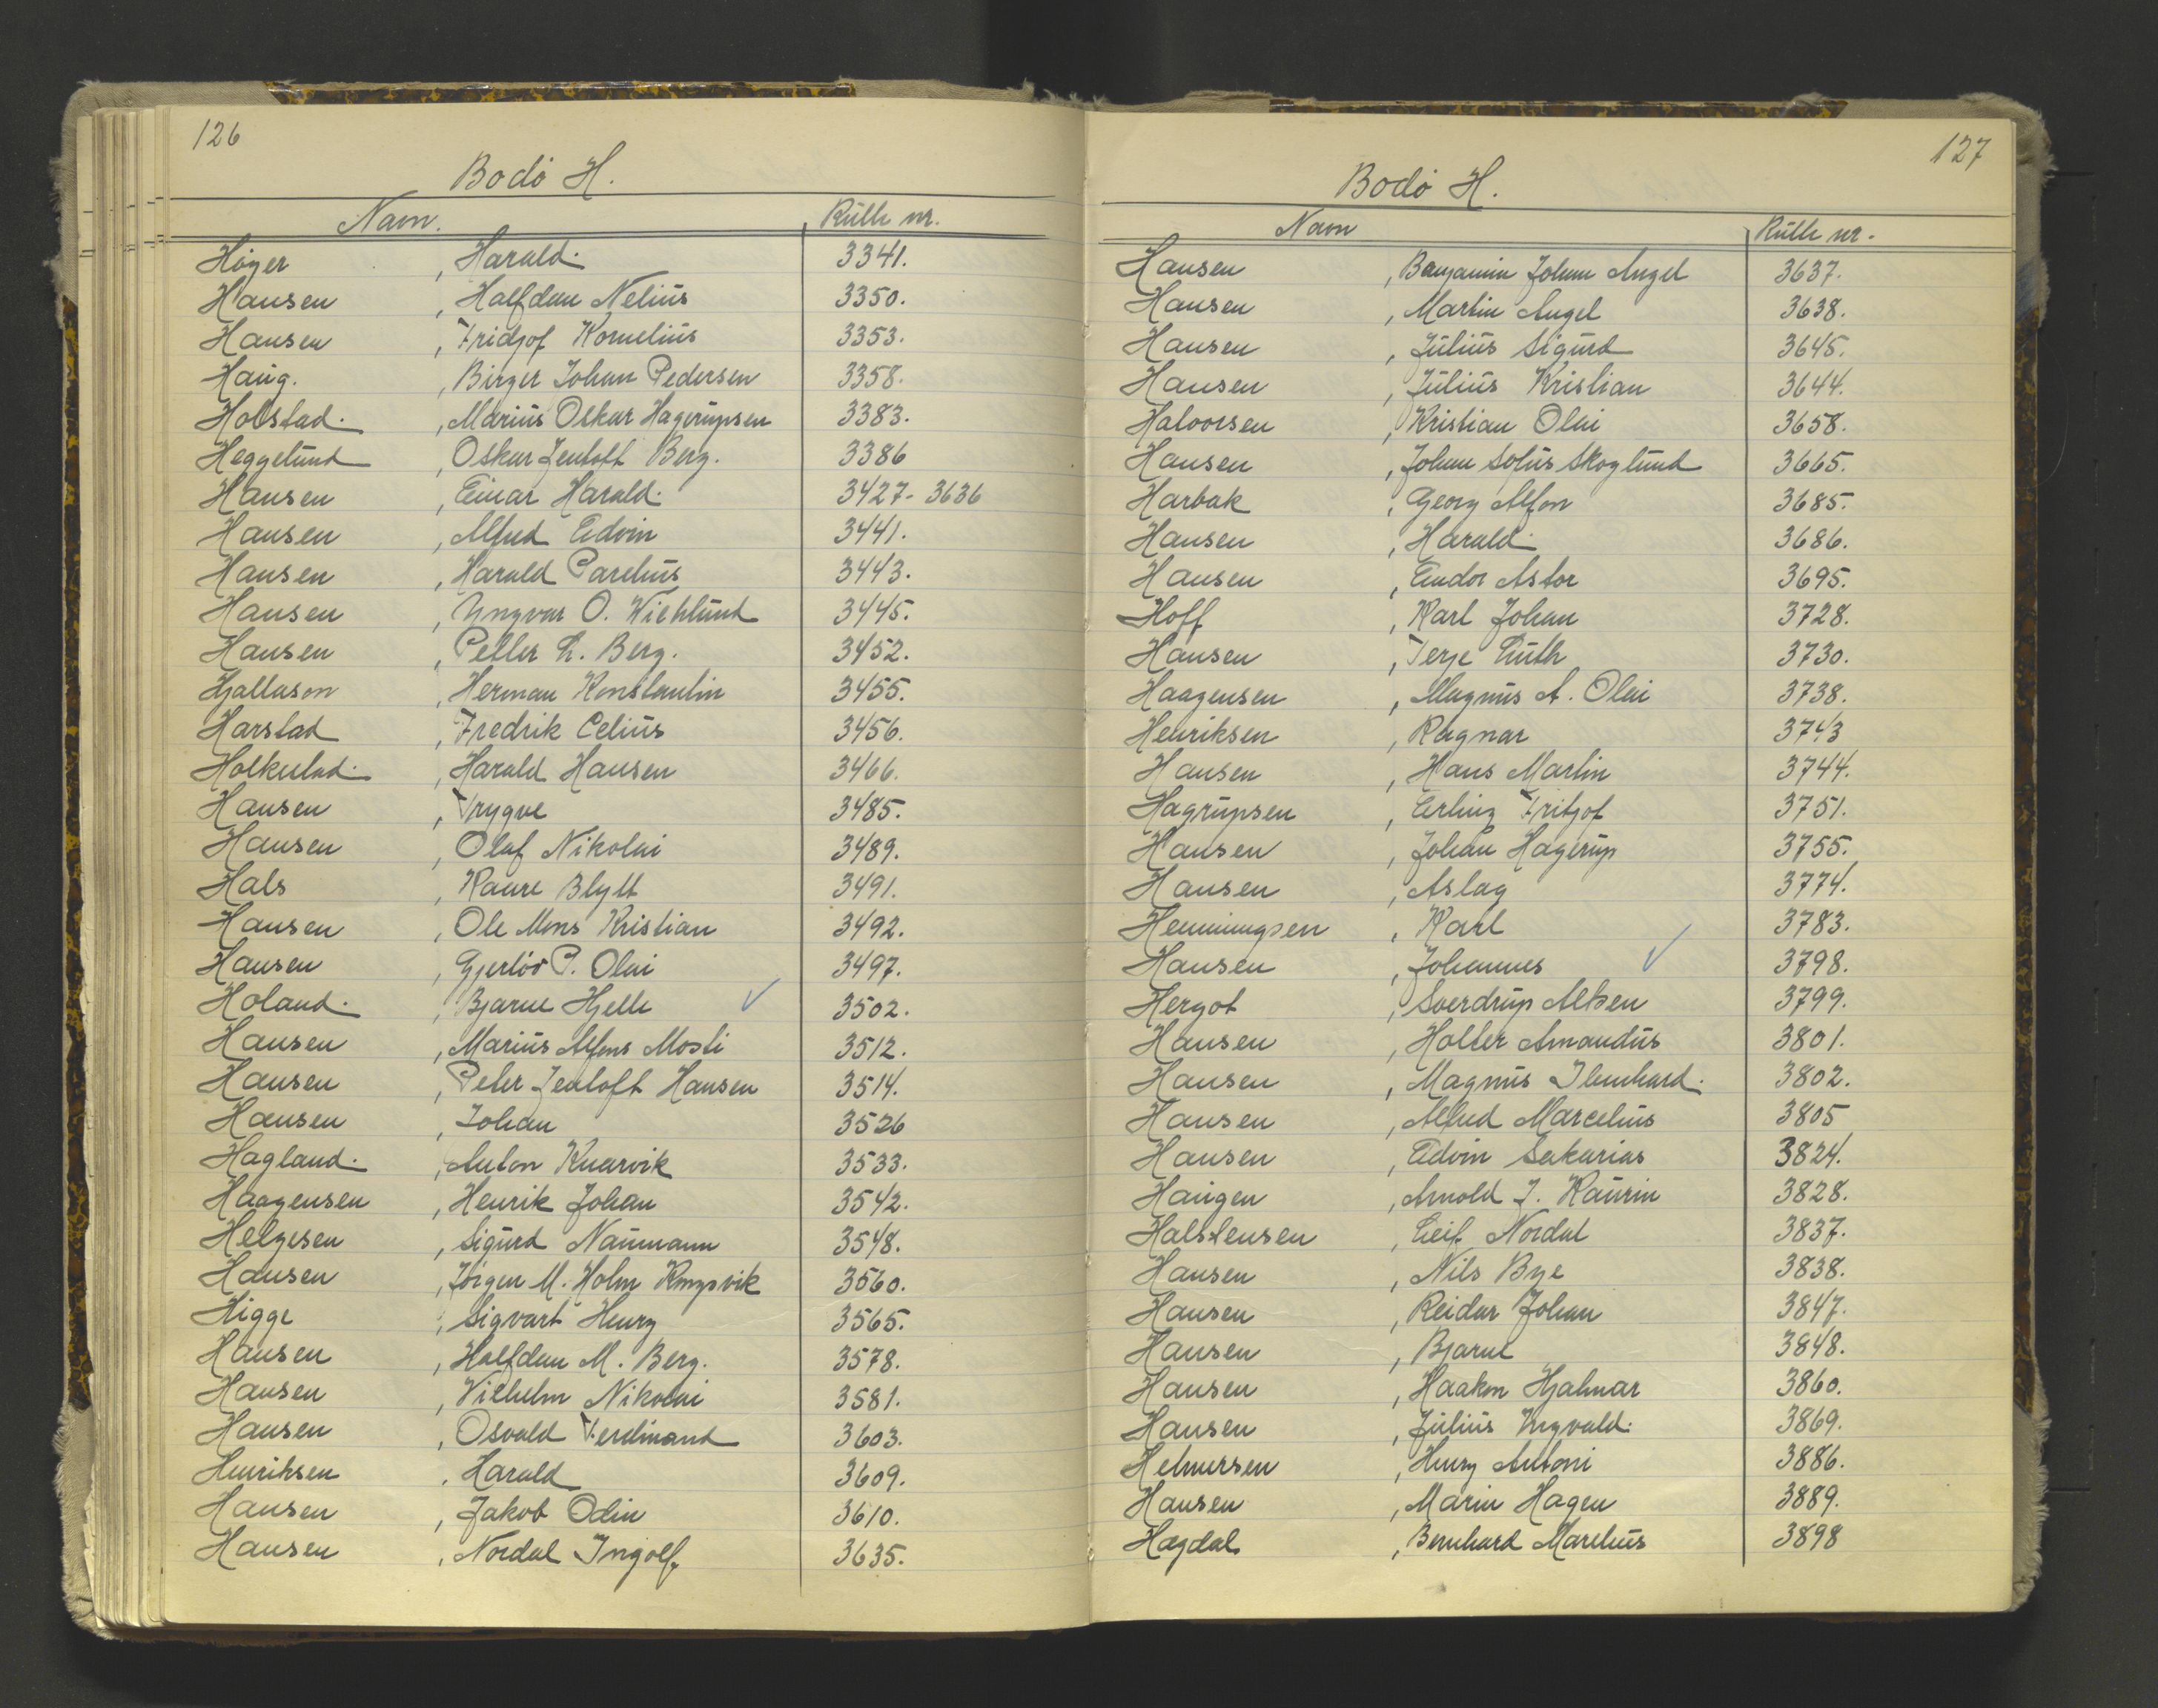 126
Bodø H.
Navn. Rulle nr.
Høyer , Harald. 3341.
Hansen , Halfdan Nelius 3350.
Hansen , Fridjof Kornelius 3353.
Haug. , Birger Johan Pedersen 3358.
Holstad. , Marius Oskar Hagerupsen 3383.
Heggelund , Oskar Jentoft Berg. 3386
Hansen , Einar Harald. 3427 - 3636
Hansen , Alfred Edvin 3441.
Hansen , Harald Parelius 3443.
Hansen , Yngvar O. 3445.
Hansen , Petter L. Berg. 3452.
Hjallason , Herman Konstantin 3455.
Harstad , Fredrik Celius 3456.
Holkestad. , Harald Hansen 3466.
Hansen , Trygve 3485.
Hansen , Olaf Nikolai 3489.
Hals , Kaare Blytt 3491.
Hansen , Ole Mons Kristian 3492.
Hansen , Gjerløv P. Olai 3497.
Holand. , Bjarne Hjelle ✓ 3502.
Hansen , Marius Alfons Mosti 3512.
Hansen , Peter Jentoft Hansen 3514.
Hansen , Johan 3526
Hagland. , Anton Knarvik 3533.
Haagensen , Henrik Johan 3542.
Helgesen , Sigurd Naumann 3548.
Hansen , Jørgen M. Holm 3560.
Higge , Sigvart Henry 3565.
Hansen , Halfdan M. Berg. 3578.
Hansen , Vilhelm Nikolai 3581.
Hansen , Osvald Ferdinand 3603.
Henriksen , Harald 3609.
Hansen , Jakob Odin 3610.
Hansen , Nordal Ingolf 3635.
127
Bodø H.
Navn Rulle nr.
Hansen , Benjamin Johan Angel 3637.
Hansen , Martin Angel 3638.
Hansen , Julius Sigurd 3645.
Hansen , Julius Kristian 3644.
Halvorsen , Kristian Olai 3658.
Hansen , Johan Sofus Skoglund 3665.
Harbak , Georg Alfon 3685.
Hansen , Harald. 3686.
Hansen , Endor Astor 3695.
Hoff , Karl Johan 3728.
Hansen , Terje Luth 3730.
Haagensen , Magnus A. Olai 3738.
Henriksen , Ragnar 3743
Hansen , Hans Martin 3744.
Hagrupsen , Erling Fritjof 3751.
Hansen , Johan Hagerup 3755.
Hansen , Aslag 3774.
Henningsen , Karl 3783.
Hansen , Johannes ✓ 3798.
Hergot , Sverdrup 3799.
Hansen , Holter Amandus 3801.
Hansen , Magnus 3802.
Hansen , Alfred Marcelius 3805
Hansen , Edvin Sakarias 3824.
Haugen , Arnold J. Kaurin 3828.
Halstensen , Leif Nordal 3837.
Hansen , Nils Bye 3838.
Hansen , Reidar Johan 3847.
Hansen , Bjarne 3848.
Hansen , Haakon Hjalmar 3860.
Hansen , Julius Yngvald. 3869.
Helmersen , Henry Antoni 3886.
Hansen , Marin Hagen 3889.
Hagdal , Bernhard Marelius 3898